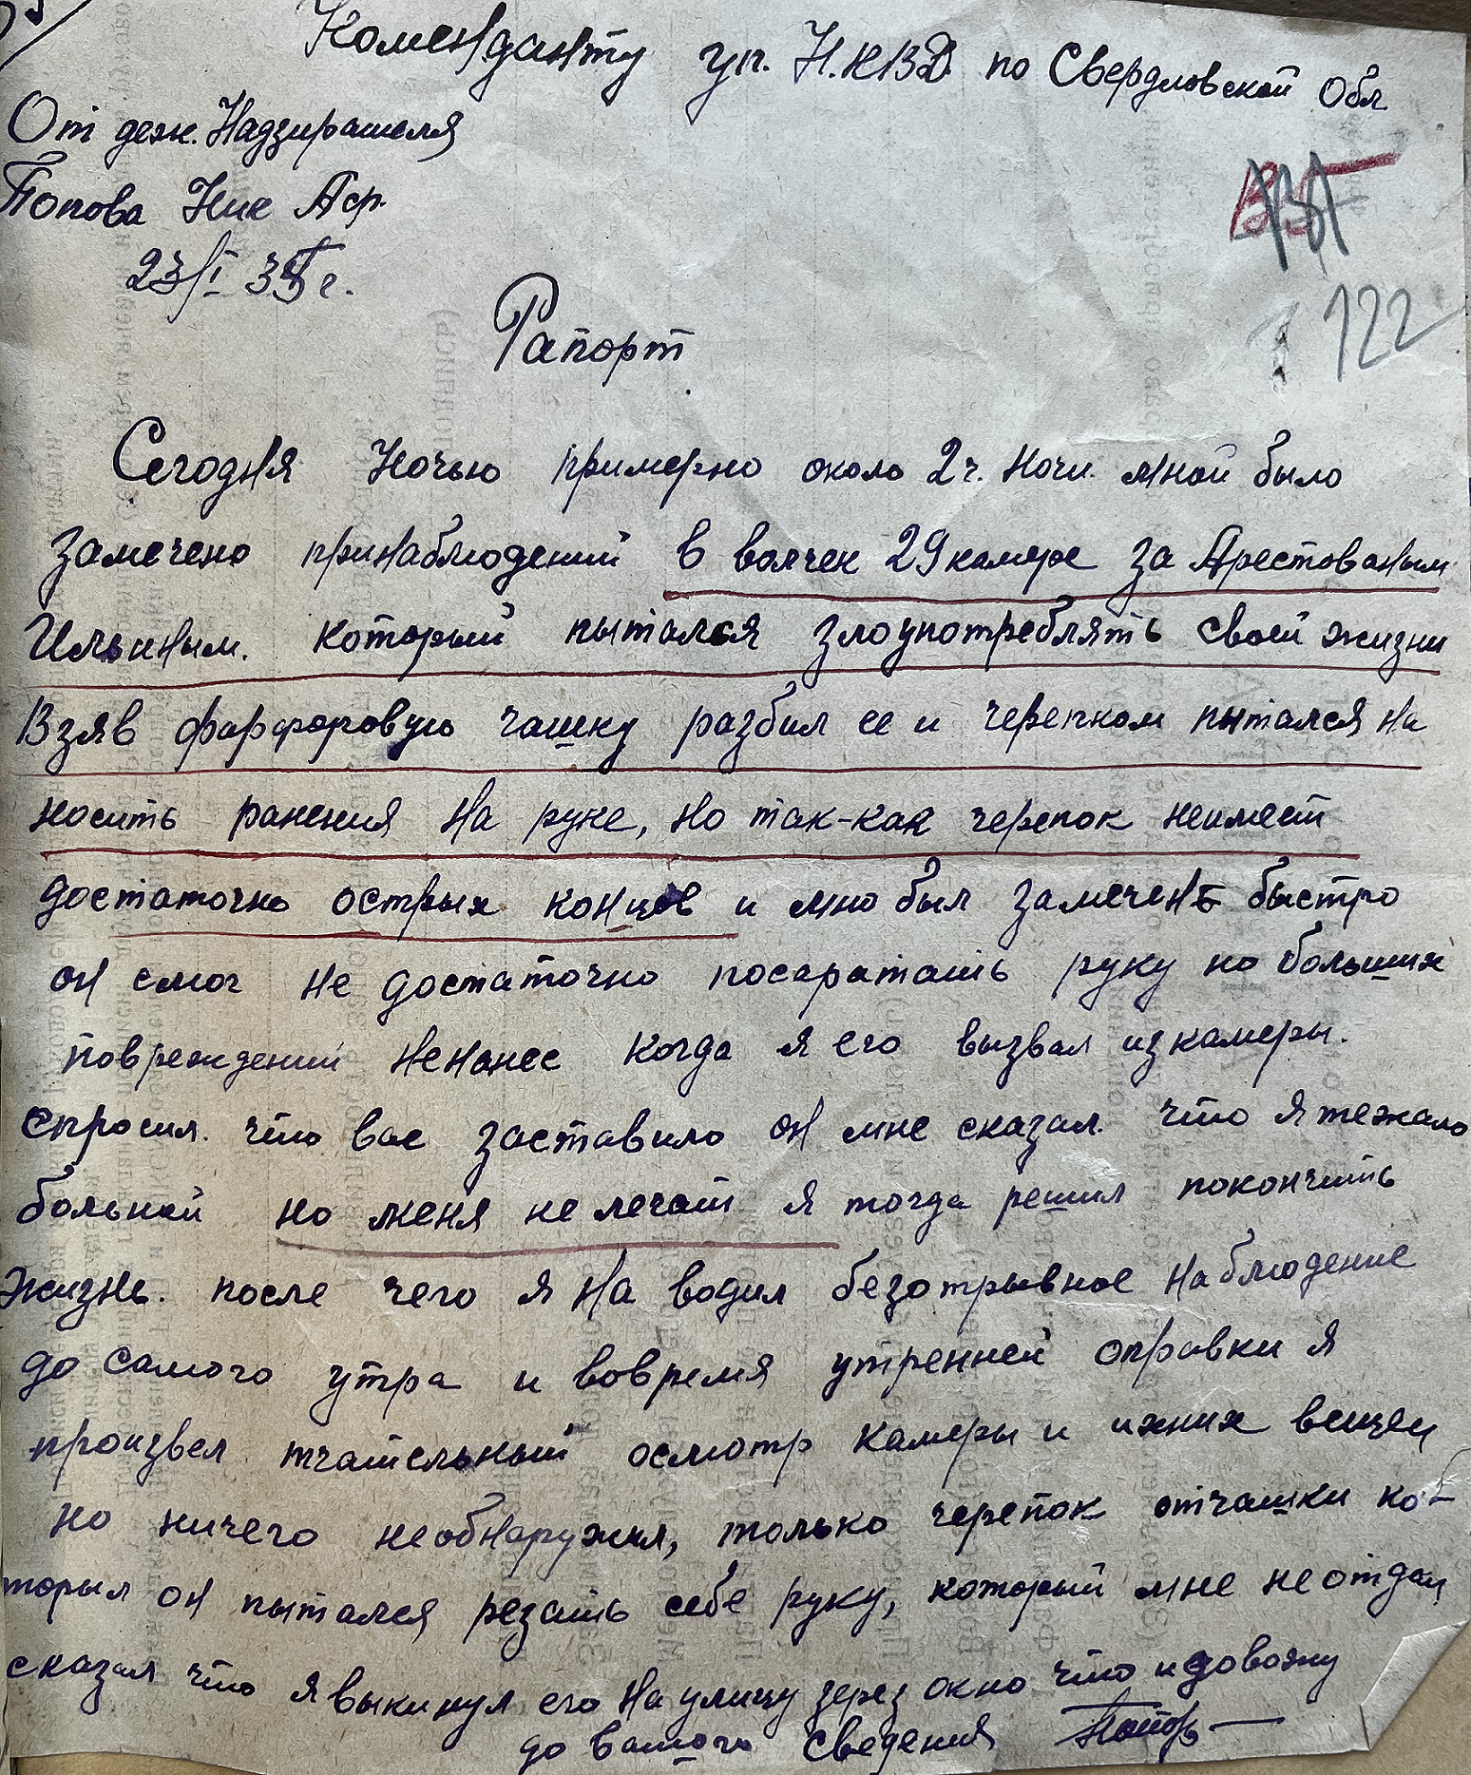 Комендданту уп. Н.КВД. по Свердловской Обл
От деж. Надзирателя
Попова Ник Аф.
23/I 35 г.
122
Рапорт
Сегодня Ночью примерно около 2 ч. ночи. мной было
замечено принаблюдений в волчек 29 камере за Арестованым
Ильиным. который пытался злоупотреблять своей жизни
Взяв фарфоровую чашку разбил ее и черепком пытался На
носить ранения На руке, Но так-как черепок неимеет
достаточно острых концов и мно был замечент быстро
он смог Не достаточно посарапать руку но больших
повреждений Ненанес когда я его вызвал изкамеры.
спросил. что вас заставило он мне сказал. что я тежало
больной но меня не лечат я тогда решил покончить
жизнь. после чего я На водил безотрывное Наблюдение
до самого утра и вовремя утренней оправки я
произвел тчательный осмотр камеры и ихних вещей
но ничего необнаружил, только черепок отчашки ко-
торыл он пытался резать себе руку, который мне неотдал
сказал что я выкинул его На улицу зерез окно что идовожу
до вашего сведения Попов